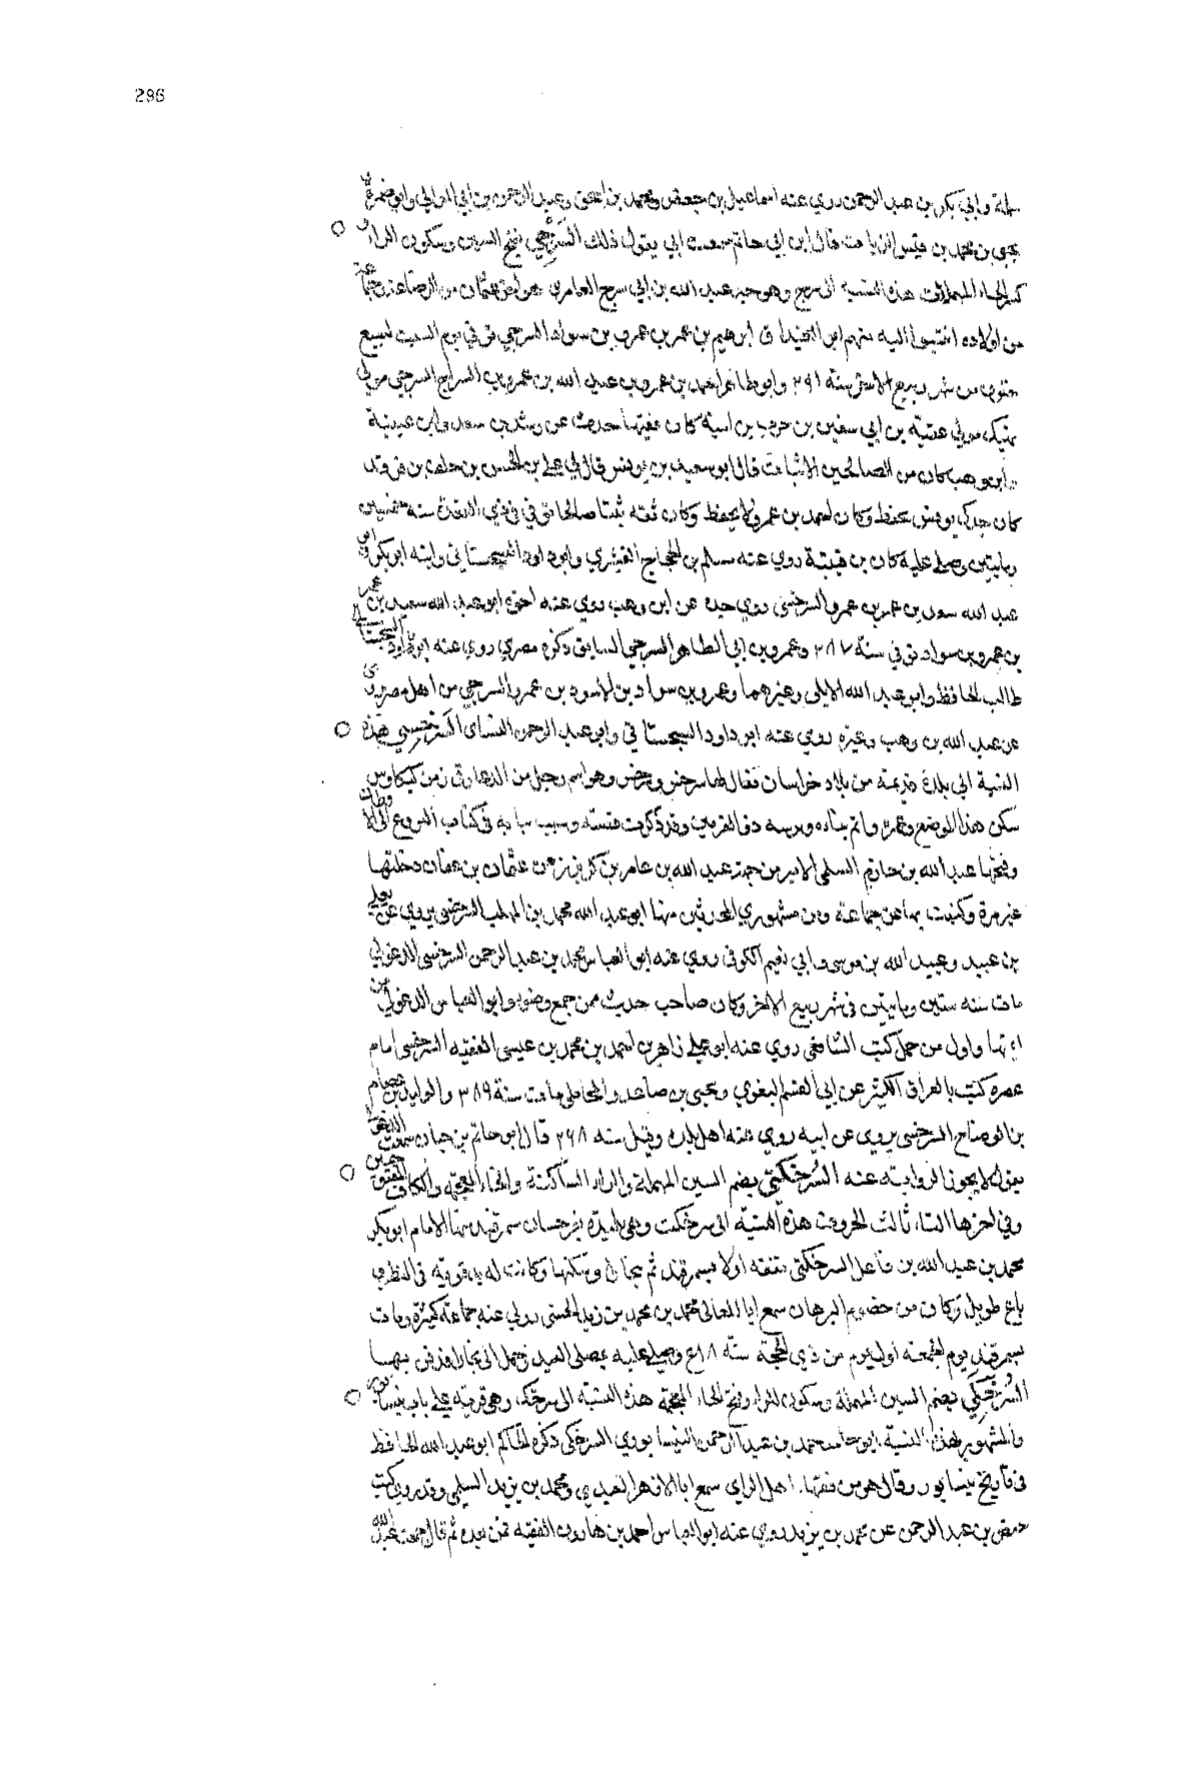 296
سلمة وابي بكر بن عبد الرحمن روي عنه اسماعيل بن جعفر ومحمد بن اسحق وعبد الرحمن بن ابي الموالي وابو ضمرة
يحيى بن محمد بن قيس قال ابن ابي حاتم سمعت ابي يقول ذلك السرحي بفتح السين وسكون الراء و
كسر الحاء المهملات هذه النسبة الى سرح وهو جد عبد الله بن ابي سرح العامري هو اخو عثمان من الرضاعة جماعة
من اولاده انتسبوا اليه منهم ابو ابرهيم بن عمر بن عمرو بن سواد السرحي توفي يوم السبت لسبع
من شهر ربيع الاخر سنة ٢٩١ وابو طاهر احمد بن عمرو بن عبد الله بن عمرو بن السراج السرحي مولى
نهيك مولى عتبة بن ابي سفين بن حرب بن امية كان فقيها حدث عن رشدين بن سعد وابن عيينة
وابن وهب كان من الصالحين الاثبات قال ابو سعيد بن يونس قال لي علي بن الحسن بن خلف بن فرقد
كان جدك يونس يحفظ وكان احمد بن عمرو لا يحفظ وكان ثقة ثبتا صالحا توفي في ذي القعدة سنة خمسين
ومايتين وصلى عليه بكار بن قتيبة روي عنه مسلم بن الحجاج القشيري وابو داود السجستاني وابنه ابو بكر وابو
عبد الله سعد بن عمر بن عمرو السرخسي روي حده عن ابن وهب روي عنه اخوه ابو عبد الله سعيد بن عمر
بن عمرو بن سواد توفي سنة ٢٨٧ وعمرو بن ابي الطاهر السرحي السابق ذكره مصري روي عنه ابو داود السجستاني
طالب الحافظ وابو عبد الله الايلي وغيرهما وعمرو بن سواد بن الاسود بن عمرو السرحي من اهل مصر يروي
عن عبد الله بن وهب وغيره روي عنه ابو داود السجستاني وابو عبد الرحمن النساي السرخسي هذه
النسبة الى بلدة قديمة من بلاد خراسان يقال لها سرخس وسرخس وهو اسم رجل من الذعار في زمن كيكاوس
سكن هذا الموضع وعمره واتم بناه ومدينته ذو القرنين وقد ذكرت قصته وسبب بنايه في كتاب النزوع الى الاوطان
وفتحها عبد الله بن خازم السلمي الامير من جهة عبد الله بن عامر بن كريز زمن عثمان بن عفان دخلتها
غير مرة وكتبت بها عن جماعة ومن مشهوري المحدثين منها ابو عبد الله محمد بن المهلب السرخسي يروي عن يعلي
بن عبيد وعبيد الله بن موسى وابي نعيم الكوفي روي عنه ابو العباس محمد بن عبد الرحمن السرخسي الدغولي
مات سنه ستين ومايتين في شهر ربيع الاخر وكان صاحب حديث ممن جمع وصنف وابو العباس الدغولي من
ايمتها واول من حمل كتب الشافعي روي عنه ابو علي زاهر بن احمد بن محمد بن عيسى الفقيه السرخسي امام
عصره كتب بالعراق الكثير عن ابي القسم البغوي ويحيى بن صاعد والمحاملي مات سنة ٣٨٩ والوليد بن عصام
بن الوضاح السرخسي يروي عن ابيه روي عنه اهل بلده وقيل سنه ٢٦٨ قال ابو حاتم بن حبان سمعت الدغولي
يقول لا يجوز الرواية عنه السرخكتي بضم السين المهملة والراء الساكنة والخاء المعجمة والكاف المفتوحتين
وفي اخرها التاء ثالث الحروف هذه النسبة الى سرخكت وهي بليدة بغرجستان سمرقند منها الامام ابو بكر
محمد بن عبد الله بن فاعل السرخكتي تفقه اولا بسمرقند ثم ببخارا وسكنها وكانت له يد قوية في النظر و
باع طويل وكان من خصوم البرهان سمع ابا المعالي محمد بن محمد بن زيد الحسني روي لي عنه جماعة كثيرة ومات
بسمرقند يوم الجمعة اول يوم من ذي الحجة سنة وصلي عليه بمصلى العيد وحمل الى بخارا فدفن بها
السرخكي بضم السين المهملة وسكون الراء وفتح الخاء المعجمة هذه النسبة الى سرخك وهي قرية على باب نيسابور
والمشهور بهذه النسبة ابو حامد محمد بن عبد الرحمن النيسابوري السرخكي ذكره الحاكم ابو عبد الله الحافظ
في تاريخ نيسابور وقال هو من فقهاء اهل الراي سمع ابا الازهر العبدي ومحمد بن يزيد السلمي وقد روي كتب
حفص بن عبد الرحمن عن محمد بن يزيد روي عنه ابو العباس احمد بن هارون الفقيه فمن بعده ثم قال سمعت عبد الله